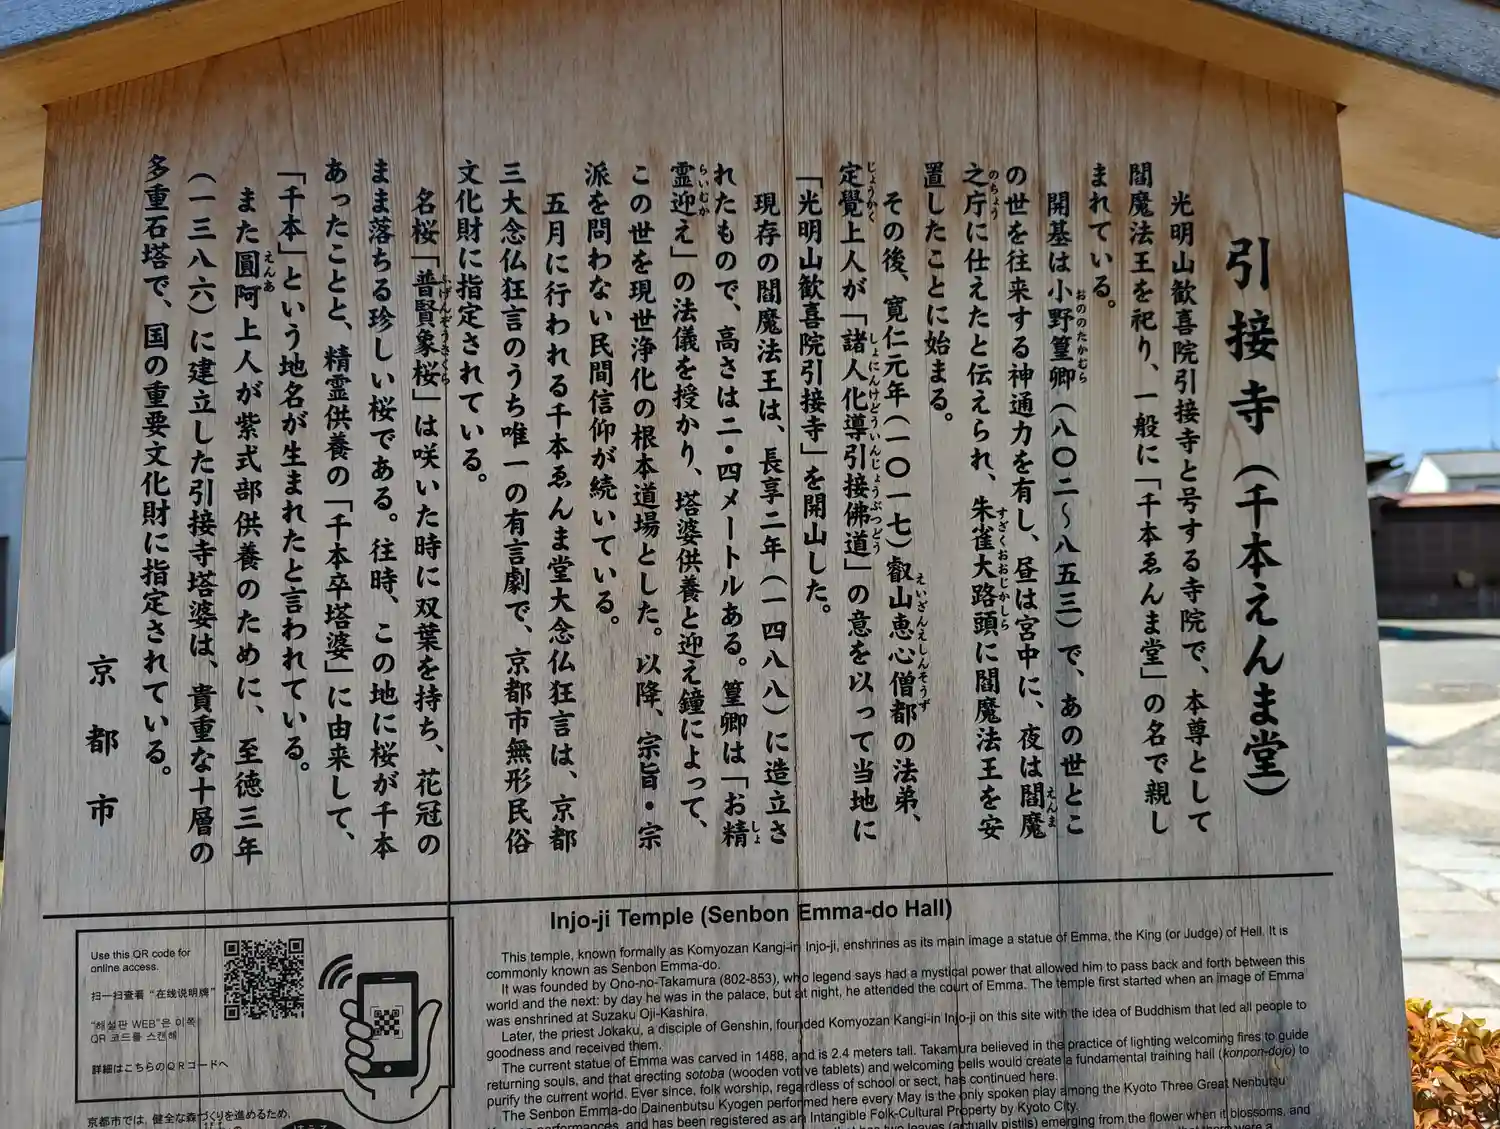 引接寺（千本えんま堂）
光明山歓喜院引接寺と号する寺院で、本尊として
閻魔法王を祀り、一般に「千本ゑんま堂」の名で親し
まれている。
開基は小野篁卿（八〇二〜八五三）で、あの世とこ
おののたかむら
の世を往来する神通力を有し、昼は宮中に、夜は閻魔
えんま
之庁に仕えたと伝えられ、朱雀大路頭に閻魔法王を安
のちょう
すざくおおじかしら
置したことに始まる。
その後、寛仁元年（一〇一七）叡山恵心僧都の法弟、
えいざんえしんそうず
定覺上人が「諸人化導引接佛道」の意を以って当地に
じょうかく
しょにんけどういんじょうぶつどう
「光明山歓喜院引接寺」を開山した。
現存の閻魔法王は、長享二年（一四八八）に造立さ
れたもので、高さは二・四メートルある。篁卿は「お精
しょ
霊迎え」の法儀を授かり、塔婆供養と迎え鐘によって、
らいむか
この世を現世浄化の根本道場とした。以降、宗旨・宗
派を問わない民間信仰が続いている。
五月に行われる千本ゑんま堂大念仏狂言は、京都
三大念仏狂言のうち唯一の有言劇で、京都市無形民俗
文化財に指定されている。
名桜「普賢象桜」は咲いた時に双葉を持ち、花冠の
ふげんぞうさくら
まま落ちる珍しい桜である。往時、この地に桜が千本
あったことと、精霊供養の「千本卒塔婆」に由来して、
「千本」という地名が生まれたと言われている。
また圓阿上人が紫式部供養のために、至徳三年
えんあ
（一三八六）に建立した引接寺塔婆は、貴重な十層の
多重石塔で、国の重要文化財に指定されている。
京都市
Use this QR code for
online access.
扫一扫查看“在线说明牌”
"해설판 WEB"은 이쪽
QR 코드를 스캔해
詳細はこちらのQRコードへ
京都市では、健全な森づくりを進めるため、
Injo-ji Temple (Senbon Emma-do Hall)
This temple, known formally as Komyozan Kangi-in Injo-ji, enshrines as its main image a statue of Emma, the King (or Judge) of Hell. It is
commonly known as Senbon Emma-do.
It was founded by Ono-no-Takamura (802-853), who legend says had a mystical power that allowed him to pass back and forth between this
world and the next: by day he was in the palace, but at night, he attended the court of Emma. The temple first started when an image of Emma
was enshrined at Suzaku Oji-Kashira.
Later, the priest Jokaku, a disciple of Genshin, founded Komyozan Kangi-in Injo-ji on this site with the idea of Buddhism that led all people to
goodness and received them.
The current statue of Emma was carved in 1488, and is 2.4 meters tall. Takamura believed in the practice of lighting welcoming fires to guide
returning souls, and that erecting sotoba (wooden votive tablets) and welcoming bells would create a fundamental training hall (konpon-dojo) to
purify the current world. Ever since, folk worship, regardless of school or sect, has continued here.
The Senbon Emma-do Dainenbutsu Kyogen performed here every May is the only spoken play among the Kyoto Three Great Nenbutsu
performances, and has been registered as an Intangible Folk-Cultural Property by Kyoto City.
two leaves (actually pistils) emerging from the flower when it blossoms, and